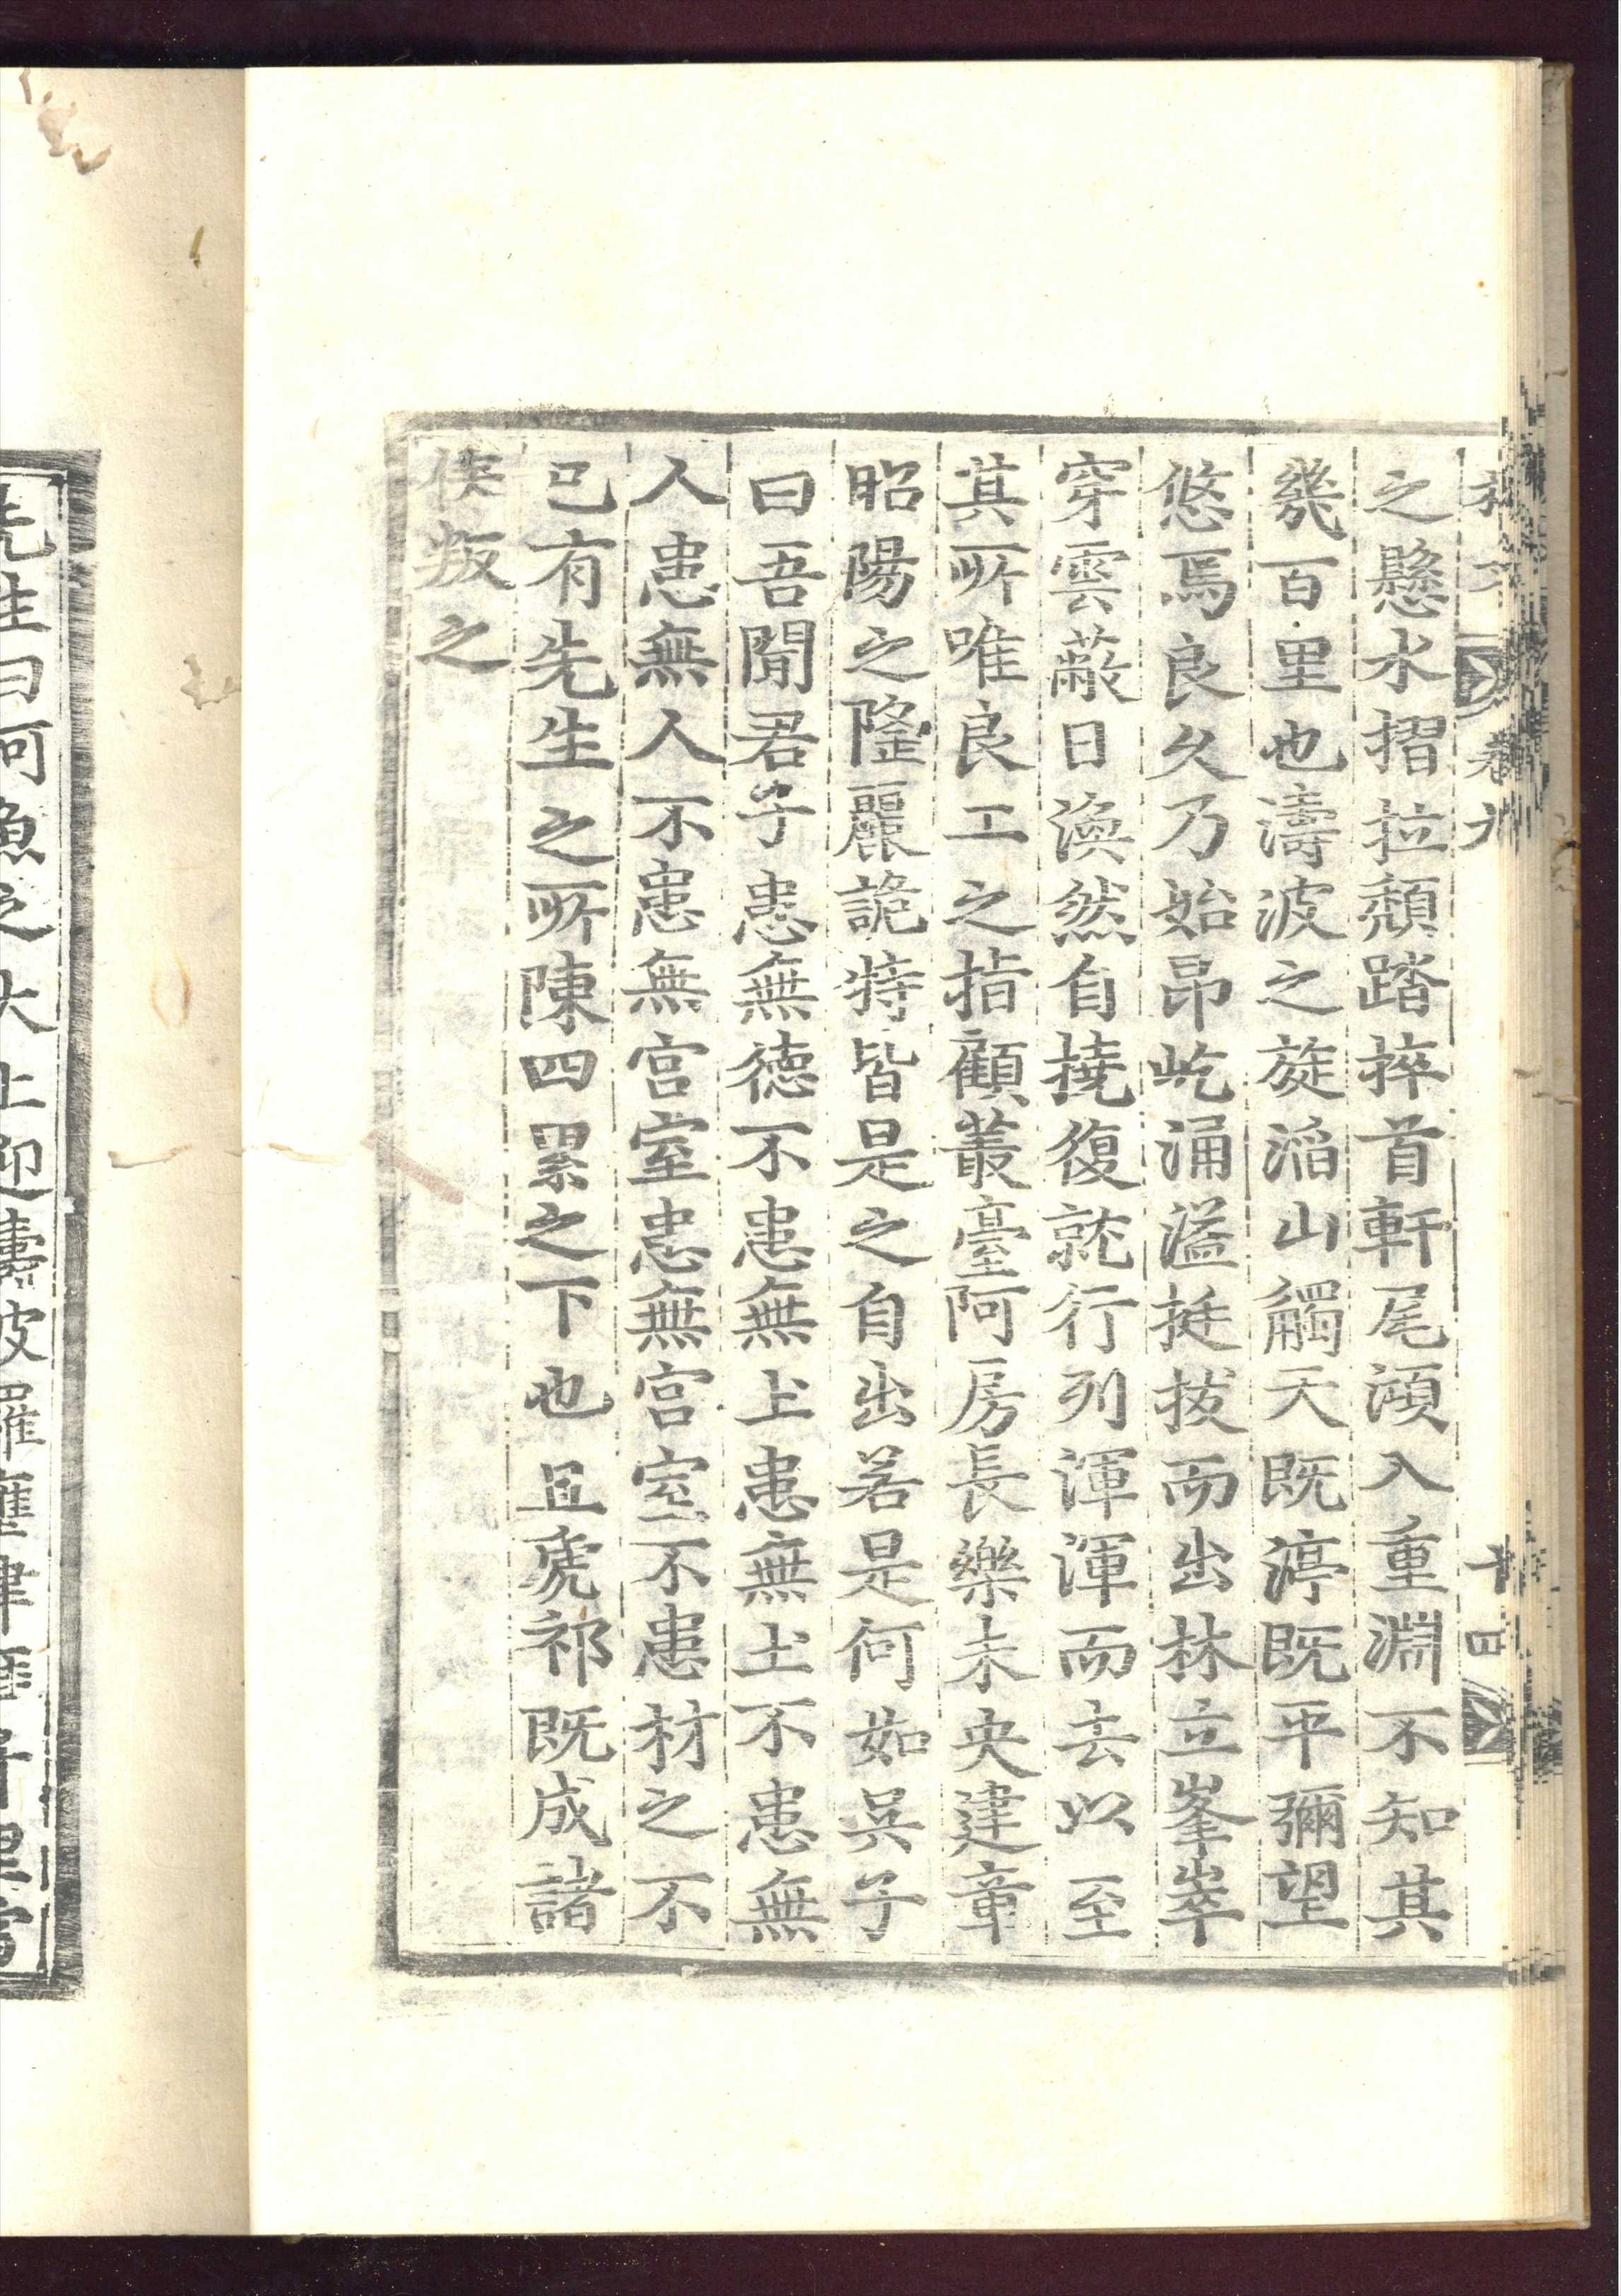 之懸水摺拉頹踏捽首軒尾澒入重淵不知其
幾百里也濤波之旋滔山觸天既渟既平彌望
悠焉良久乃始昂屹涌溢挺拔而出林立峯崒
穿雲蔽日渙然自撓復就行列渾渾而去以至
其所唯良工之指顧叢臺阿房長樂未央建章
昭陽之隆麗詭特皆是之自出若是何如吳子
曰吾聞君子患無德不患無土患無土不患無
人患無人不患無宮室患無宮室不患材之不
已有先生之所陳四累之下也且虒祁既成諸
侯叛之
卷六
十四